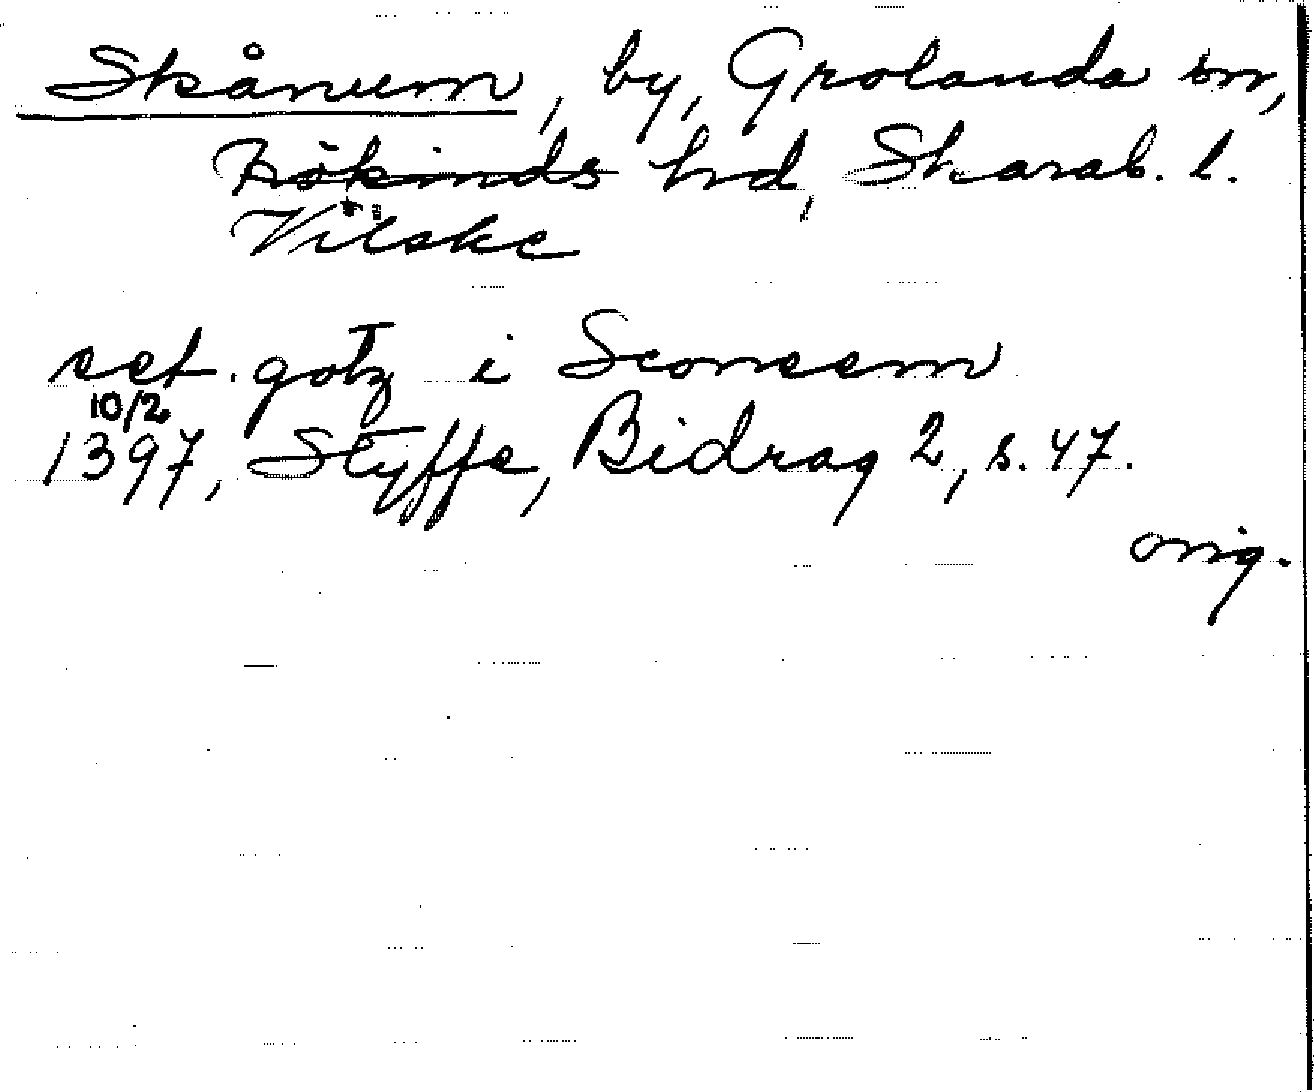 Skånum, by, Grolanda sn,
Frökinds hrd, Skarab. l.
Vilske
set. gotz i Sconeem
10/2
1397, Styffe, Bidrag 2, s. 47.
orig.